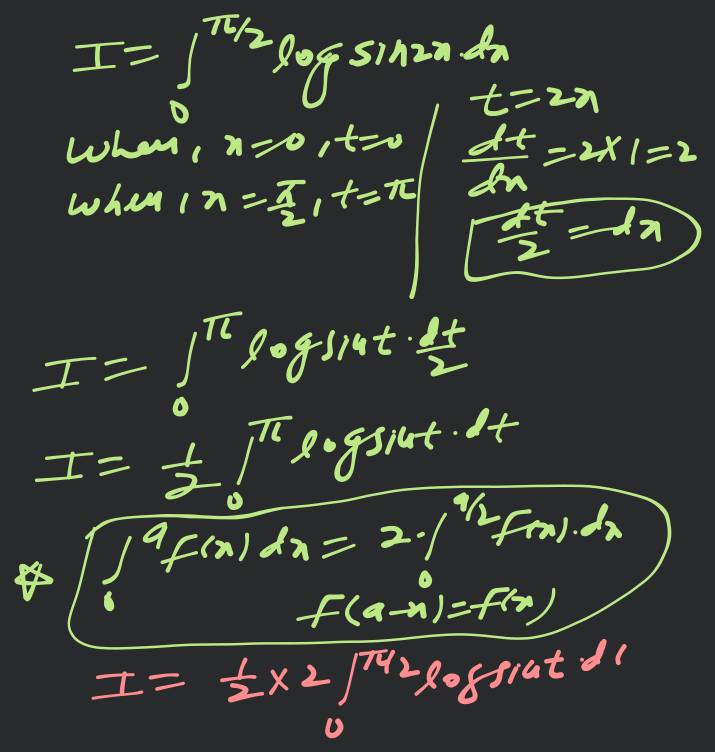 I = ∫₀^π/2 log sin2x·dx
when, x=0, t=0
when, x = π/2, t=π
t=2x
dt/dx = 2×1=2
dt/2 = dx
I = ∫₀^π log sint·dt/2
I = 1/2 ∫₀^π log sint·dt
☆ ∫₀^a f(x) dx = 2·∫₀^a/2 f(x)·dx
f(a-x)=f(x)
I = 1/2 × 2 ∫₀^π/2 log sint·d